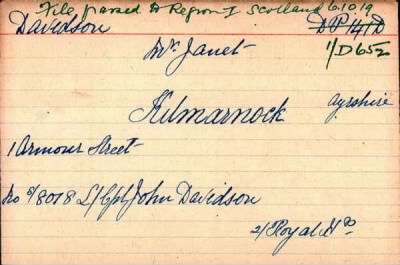 File passed to Region I Scotland 6.10.19
Davidson DP 141D
Mrs Janet 1/D652
Kilmarnock Ayrshire
1 Armour Street
No S/8018 L/Cpl John Davidson
2/Royal Hrs